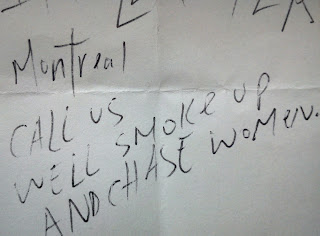 Montreal
CALL US
WELL SMOKE UP
AND CHASE WOMEN.